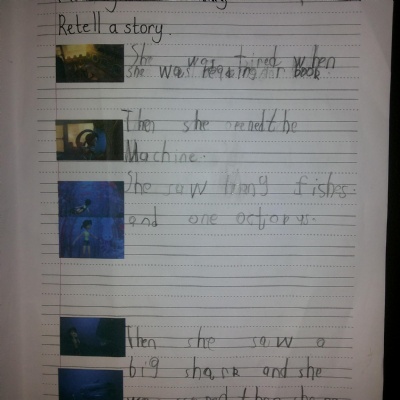 Retell a story.
She was tired when
she was reading her book
Then she opened the
Machine.
She saw fishes.
and one octopus.
Then she saw a
big shark and she